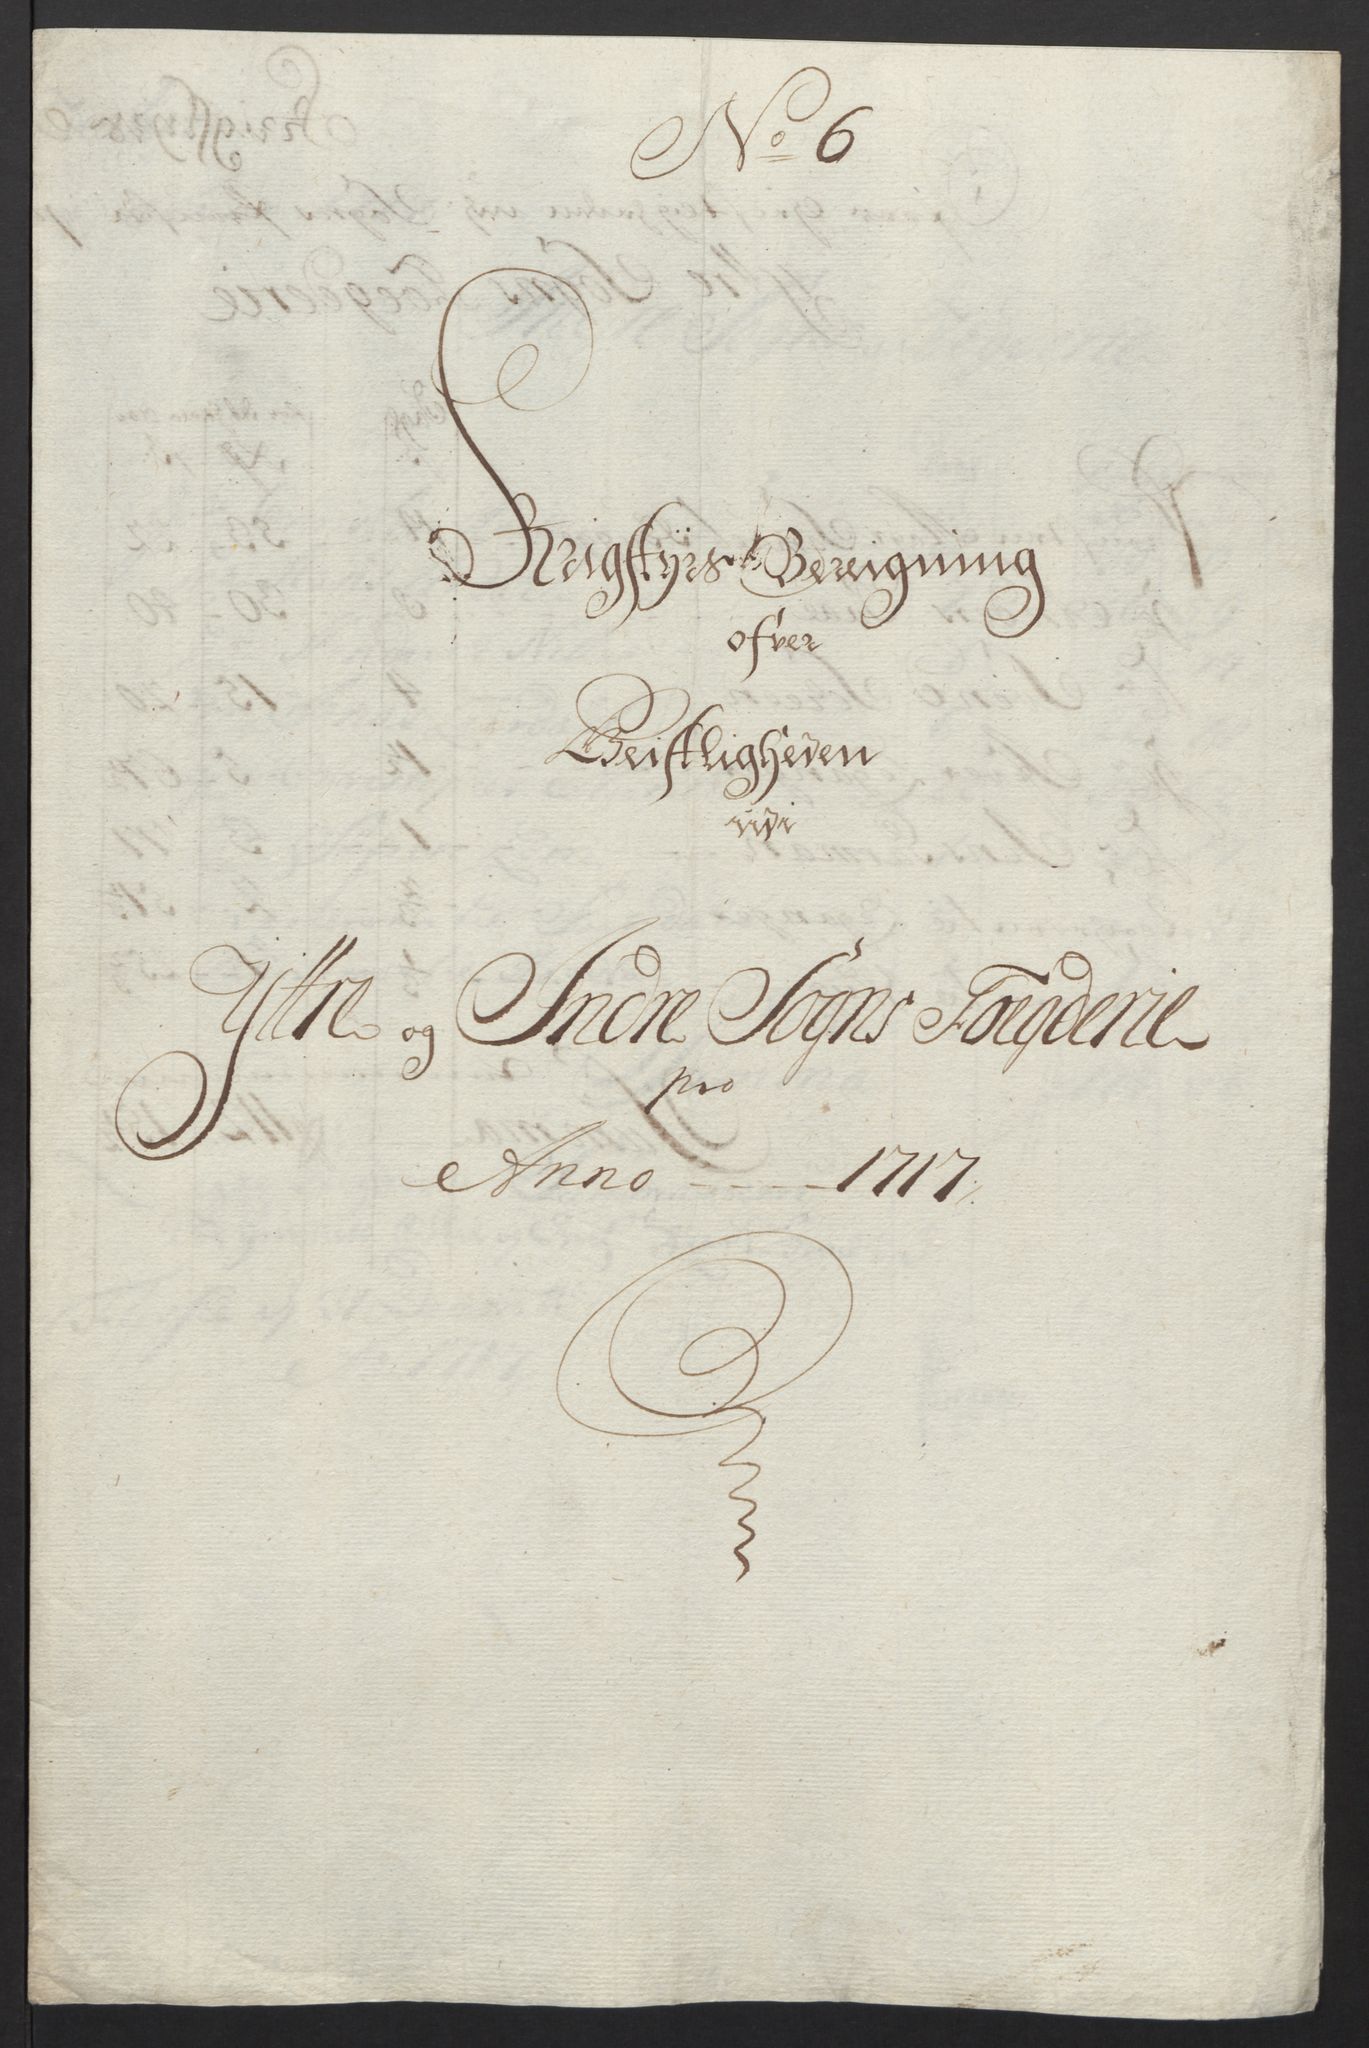 No 6
Krigstÿrs Bereigning
ofver
Geistligheden
udi
Yttre og Indre Sogns Foegderie
pro
Anno - - - - 1717,